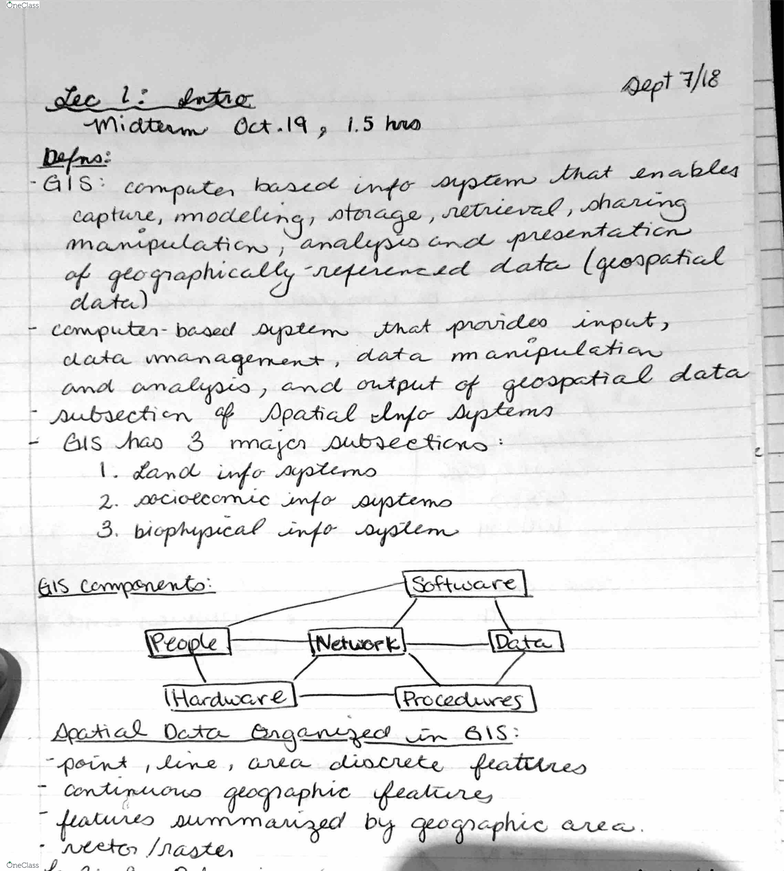 OneClass
Sept 7/18
Lec 1: Intro
Midterm Oct.19, 1.5 hrs
Defns:
- GIS: computer based info system that enables
capture, modeling, storage, retrieval, sharing
manipulation, analysis and presentation
of geographically-referenced data (geospatial
data)
- computer-based system that provides input,
data management, data manipulation
and analysis, and output of geospatial data
- subsection of Spatial Info Systems
- GIS has 3 major subsections:
1. Land info systems
2. socioecomic info systems
3. biophysical info system
GIS components:
Software
People Network Data
Hardware Procedures
Spatial Data Organized in GIS:
- point, line, area discrete features
- continuous geographic features
- features summarized by geographic area.
- vector/raster
OneClass